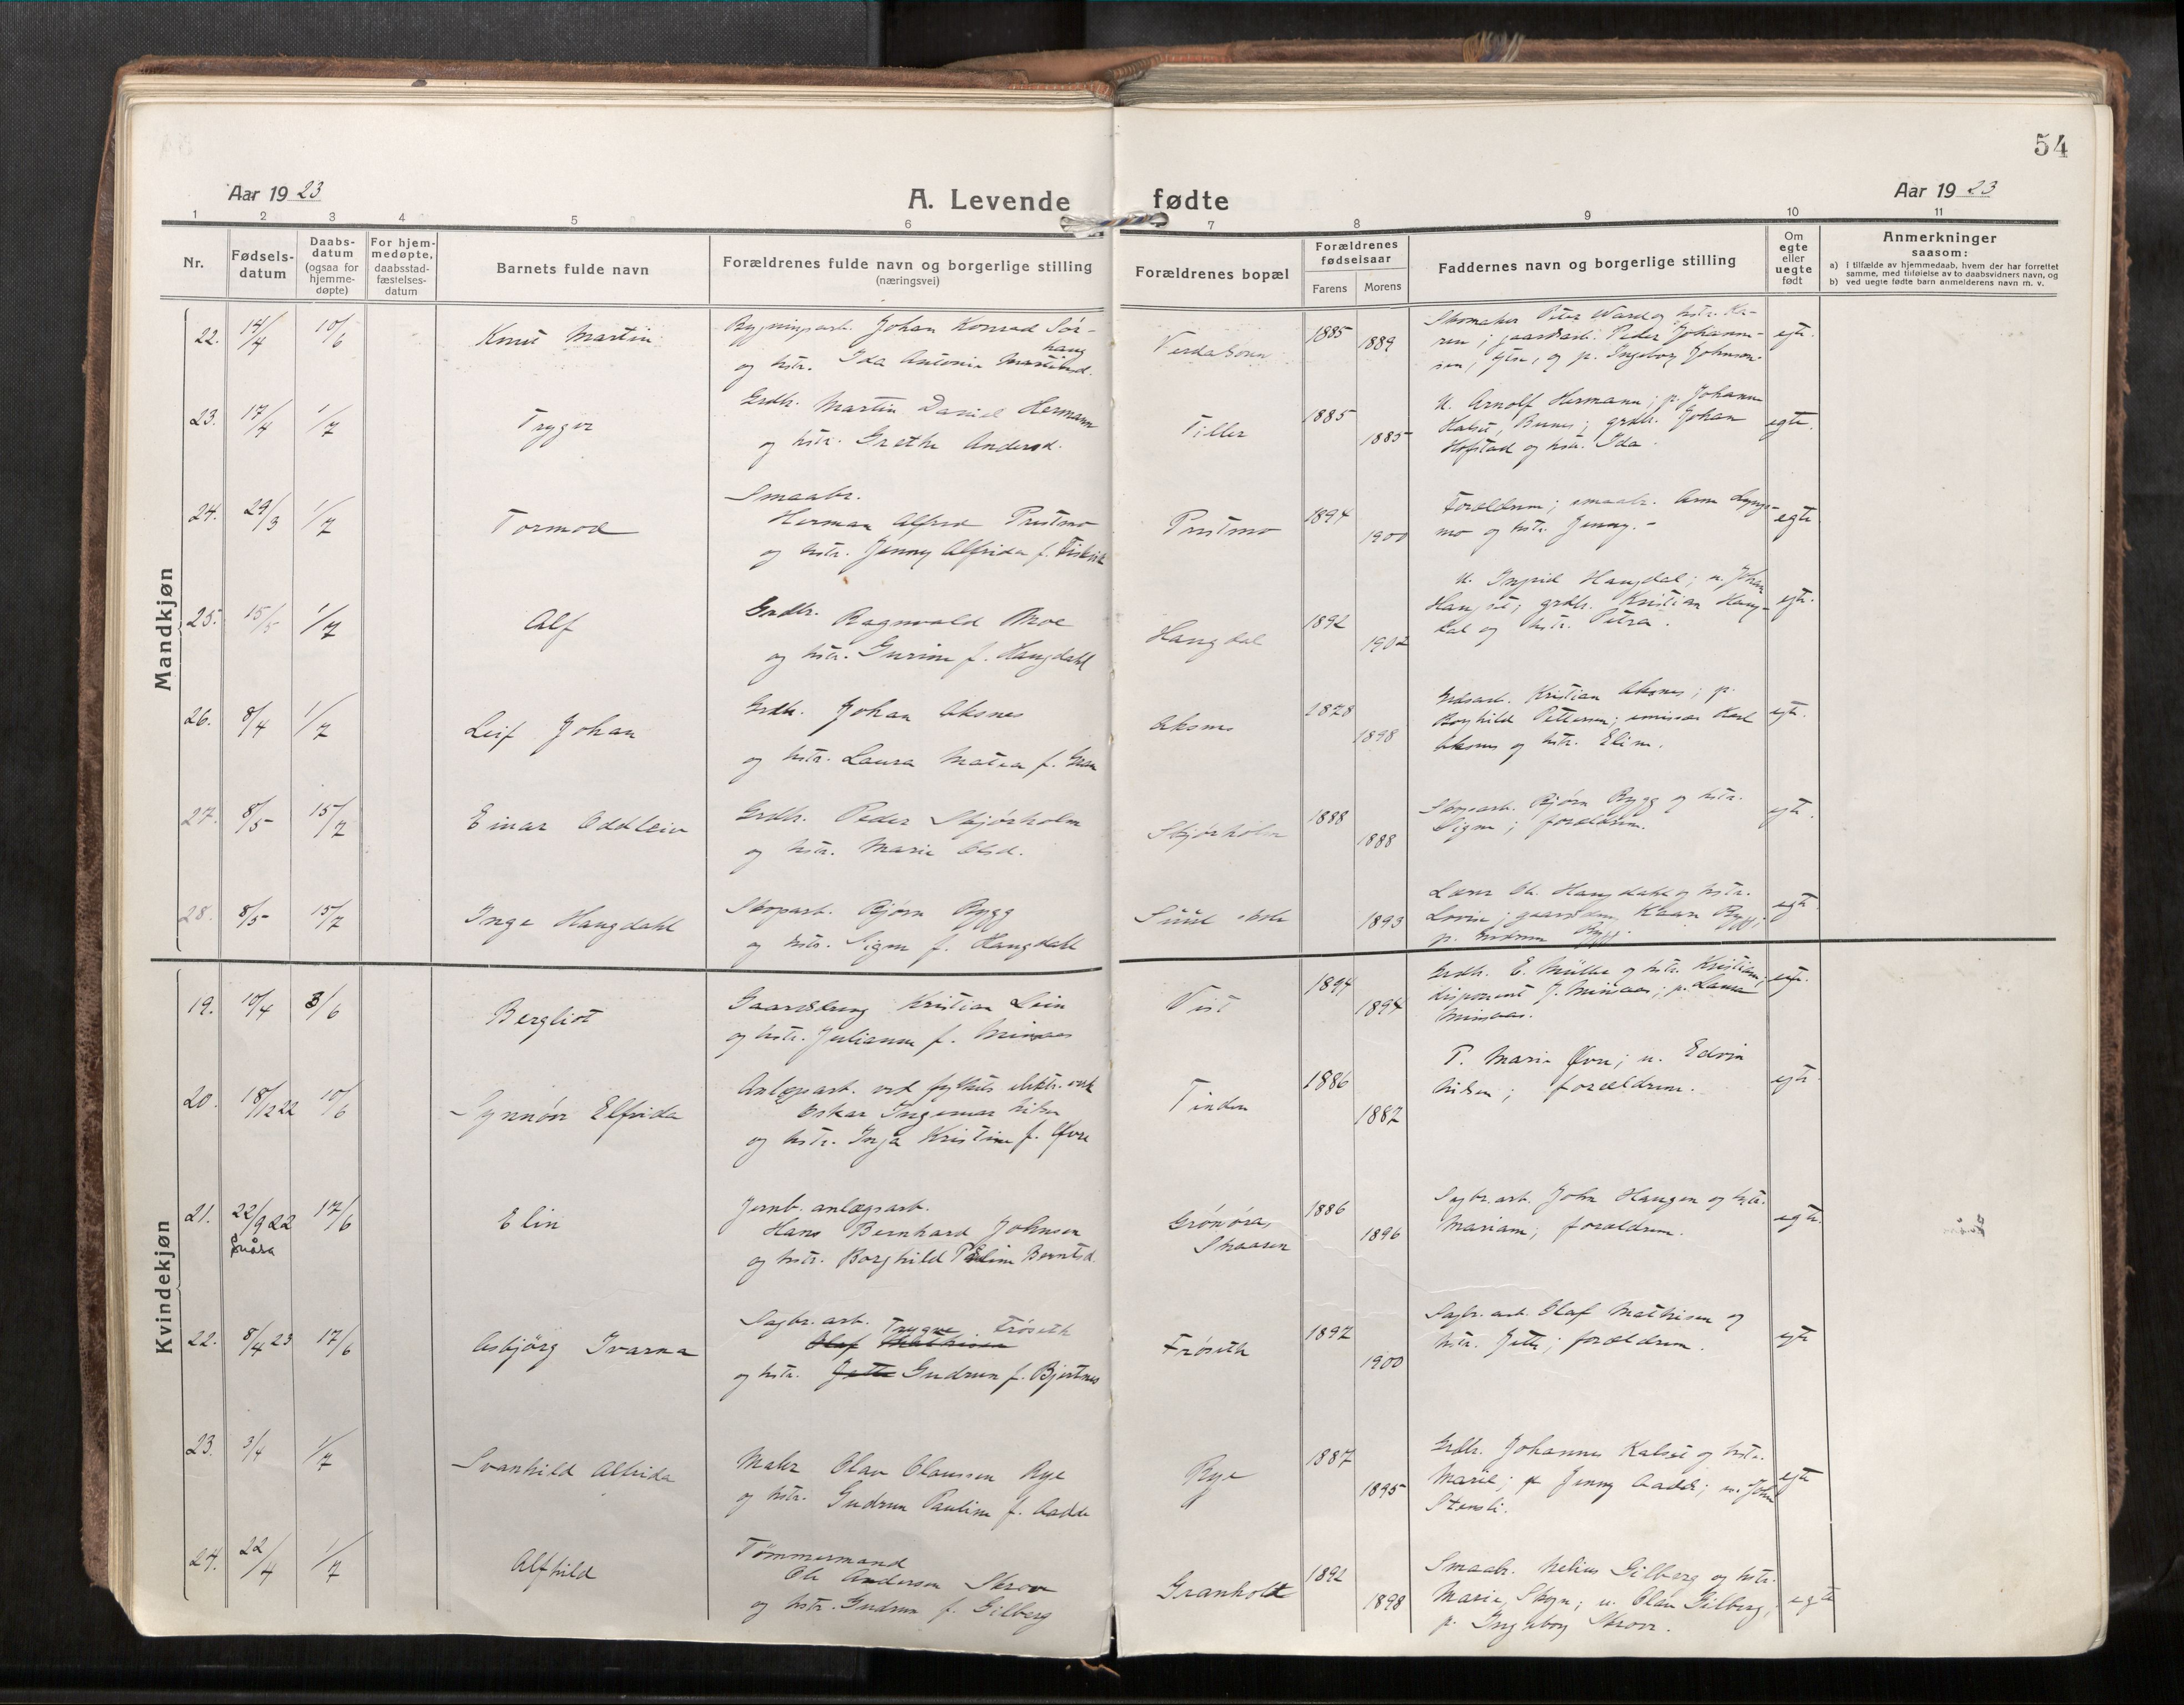 54
Aar 1923
A. Levende fødte
Aar 1923
1 2 3 4 5 6 7 8 9 10 11
Nr.
Fødsels-
datum
Daabs-
datum
(ogsaa for
hjemme-
døpte)
For hjem-
medøpte,
daabsstad-
fæstelses-
datum
Barnets fulde navn
Forældrenes fulde navn og borgerlige stilling
(næringsvei)
Forældrenes bopæl
Forældrenes
fødselsaar
Farens Morens
Faddernes navn og borgerlige stilling
Om
egte
eller
uegte
født
Anmerkninger
saasom:
a) i tilfælde av hjemmedaab, hvem der har forrettet
samme, med tilføielse av to daabsvidners navn, og
b) ved uegte fødte barn anmelderens navn m. v.
Mandkjøn
22. 14/4 10/6 Knut Martin
Bygningsarb. Johan Konrad Sør-
haug
og hstr. Ida Antonie
1885 1889
Skomaker Peter
egte.
23. 17/4 1/7 Trygve
Grdbr. Martin Daniel Hermann
og hstr. Grethe Andersd.
Tiller
1885 1885
U. Arnolf Hermann; p. Johanne
Halset, grdbr. Johan
Hofstad og hstr. Ida.
egte.
24. 29/3 1/7 Tormod
Smaabr.
Herman Alfred Prestmo
og hstr. Jenny Alfrida f.
Prestmo
1894 1900
Forældrene; smaabr.
mo og hstr. Jenny.-
egte
25. 15/5 1/7 Alf
Grdbr. Ragnvald Moe
og hstr. Gurine f. Haugdahl
Haugdal
1892 1902
U. Ingrid Haugdal; u. Johan
grdbr. Kristian Haug-
dal og hstr. Petra.
egte.
26. 8/4 1/7 Leif Johan
Grdbr. Johan Aksnes
og hstr. Laura Matea f.
Aksnes
1878 1898
Grdsarb. Kristian Aksnes; p.
Borghild Pettersen; emissær Karl
Aksnes og hstr. Eline.
egte.
27. 8/5 15/7 Einar Oddleiv
Grdbr. Peder Skjørholm
og hstr. Marie Olsd.
Skjørholm
1888 1888
Skogsarb. Bjørn Bygg og hstr.
Signe; forældrene.
egte.
28. 8/5 15/7 Inge Haugdahl
Skogsarb. Bjørn Bygg
og hstr. Signe f. Haugdahl
1893
Lærer Ol. Haugdahl og hstr.
Lovise; Kaare Bygg;
p. Gudrun Bygg.
egte.
Kvindekjøn
19. 10/4 3/6 Bergliot
Gaardsbrug Kristian Lein
og hstr. Julianne f. Minsaas
Vist
1894 1894
Grdbr. E. Müller og hstr. Kristiane;
disponent J. Minsaas; p. Laura
Minsaas.
egte.
20. 18/12 22 10/6 Synnøve Elfrida
Anlægsarb. ved fylkets elektr. verk
Oskar Ingemar Nilsen
og hstr. Inga Kristine f. Øvre
Tinden
1886 1882
P. Marie Øvre; u. Edvin
Nilsen; forældrene.
egte.
21. 22/9 22 17/6 Elin
Snåsa
Jernb. anlægsarb.
Hans Bernhard Johnsen
og hstr. Borghild Berntsd.
Grønøra,
Snaasen
1886 1896
Sagbr. arb. John Haugen og hstr.
Mariane; forældrene.
egte.
22. 8/4 23 17/6 Asbjørg Ivarna
Sagbr. arb. Trygve Frøseth
Olaf Mathisen
og hstr. Jette Gudrun f. Bjertnes
Frøseth
1897 1900
Sagbr. arb. Olaf Mathisen og
hstr. Jette; forældrene.
egte
23. 3/4 1/7 Svanhild Alfrida
Maler Olav Olaussen Rye
og hstr. Gudrun Pauline f. Aadde
Rye
1887 1895
Grdbr. Johannes Kalset og hstr.
Marie; p. Jenny Aadde; u. John
Stensli.
egte
24. 22/4 1/7 Alfhild
Tømmermand
Ole Andersen Skrove
og hstr. Gudrun f. Gilberg
Granholt
1892 1898
Smaabr. Nelius Gilberg og hstr.
Marie, Skogn; u. Olav Gilberg;
p. Ingeborg Skrove.
egte